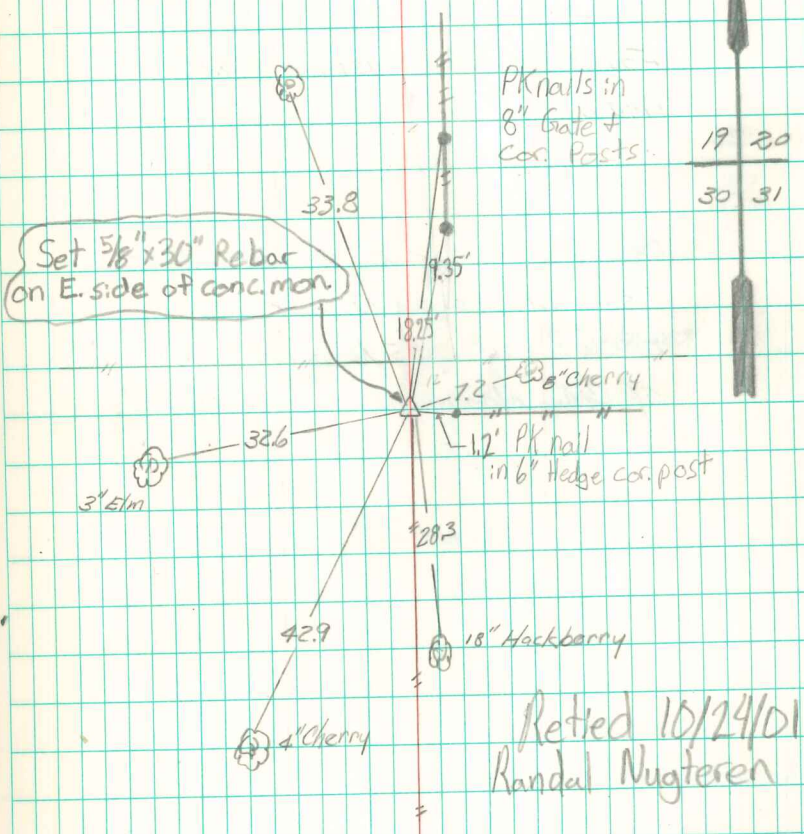 PK nails in
8" Gate +
cor. Posts
19 20
30 31
33.8
Set 5/8"x30" Rebar
on E. side of conc. mon.
9.35'
18.25'
7.2
8" Cherry
1.2' PK nail
in 6" Hedge cor. post
32.6
3" Elm
28.3
42.9
18" Hackberry
4" Cherry
Retied 10/24/01
Randal Nugteren